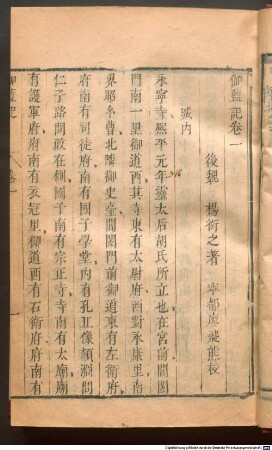 伽藍記卷一
後魏 楊衒之著 寧都廖飛熊校
城內
永寧寺熙平元年靈太后胡氏所立也在宮前閶闔
門南一里御道西其寺東有太尉府西對永康里南
界昭玄曹北鄰御史臺閶闔門前御道東有左衛府
府南有司徒府南有國子學堂內有孔丘像顏淵問
仁子路問政在側國子南有宗正寺寺南有太廟廟
有護軍府府南有衣冠里御道西有石衛府府南有
伽藍記
卷一
一